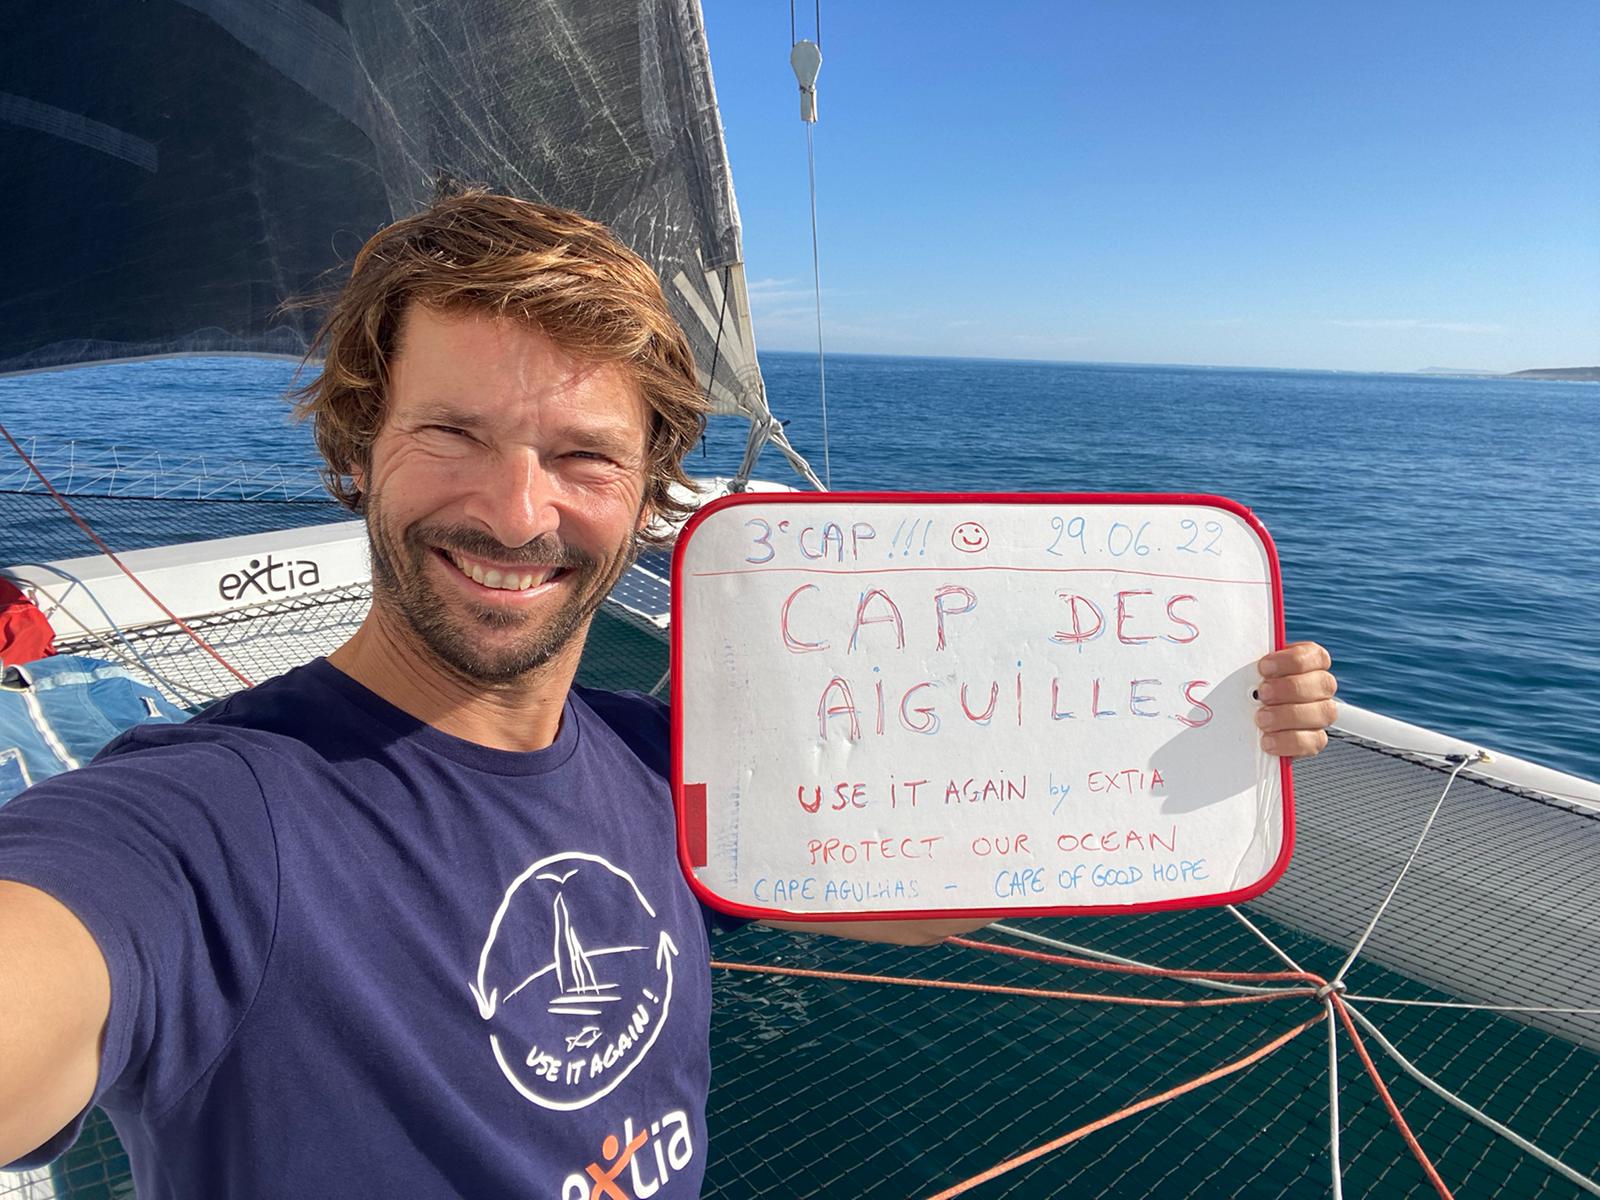 extia
3° CAP !!! 29.06.22
CAP DES
AiGUiLLES
USE iT AGAiN by EXTIA
PROTECT OUR OCEAN
CAPE AGULHAS - CAPE OF GOOD HOPE
USE IT AGAIN!
extia